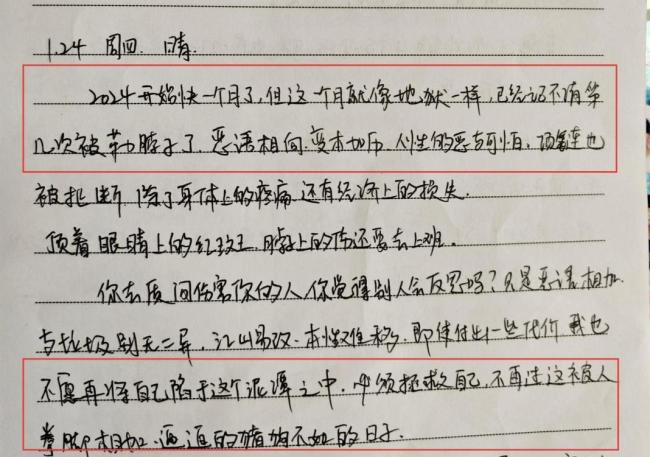 1.24 周四. 晴.
2024开始快一个月了,但这个月就像地狱一样,已经记不清第
几次被勒脖子了.恶语相向.变本加厉.人性的恶真可怕.项链也
被扯断 除了身体上的疼痛 还有经济上的损失.
顶着眼睛上的红斑,脖子上的伤还要去上班.
你去质问伤害你的人,你觉得别人会反思吗?只是恶语相加
与垃圾别无二异,江山易改.本性难移.即使付出一些代价 我也
不愿再将自己陷于这个泥潭之中.必须拯救自己,不再过这被人
拳脚相加.逼迫的猪狗不如的日子.